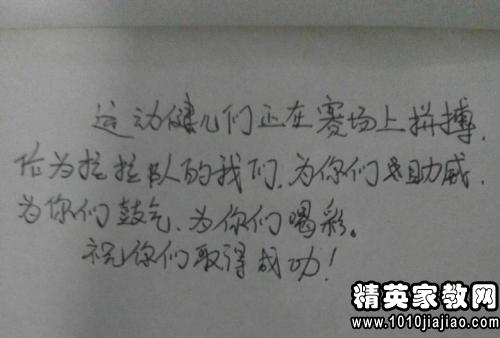 这动健儿们正在赛场上拼搏,
作为拉拉队的我们,为你们助威,
为你们鼓气、为你们喝彩。
祝你们取得成功!
精英家教网
www.1010jiajiao.com